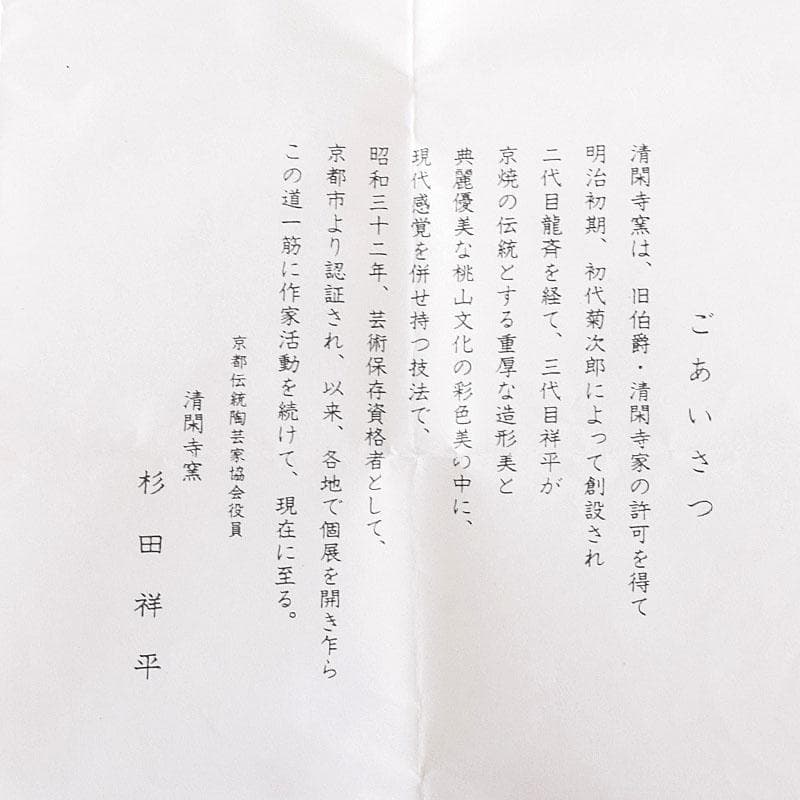 ごあいさつ
清閑寺窯は、旧伯爵・清閑寺家の許可を得て
明治初期、初代菊次郎によって創設され
二代目龍斉を経て、三代目祥平が
京焼の伝統とする重厚な造形美と
典麗優美な桃山文化の彩色美の中に、
現代感覚を併せ持つ技法で、
昭和三十二年、芸術保存資格者として、
京都市より認証され、以来、各地で個展を開き乍ら
この道一筋に作家活動を続けて、現在に至る。
京都伝統陶芸家協会役員
清閑寺窯
杉田祥平